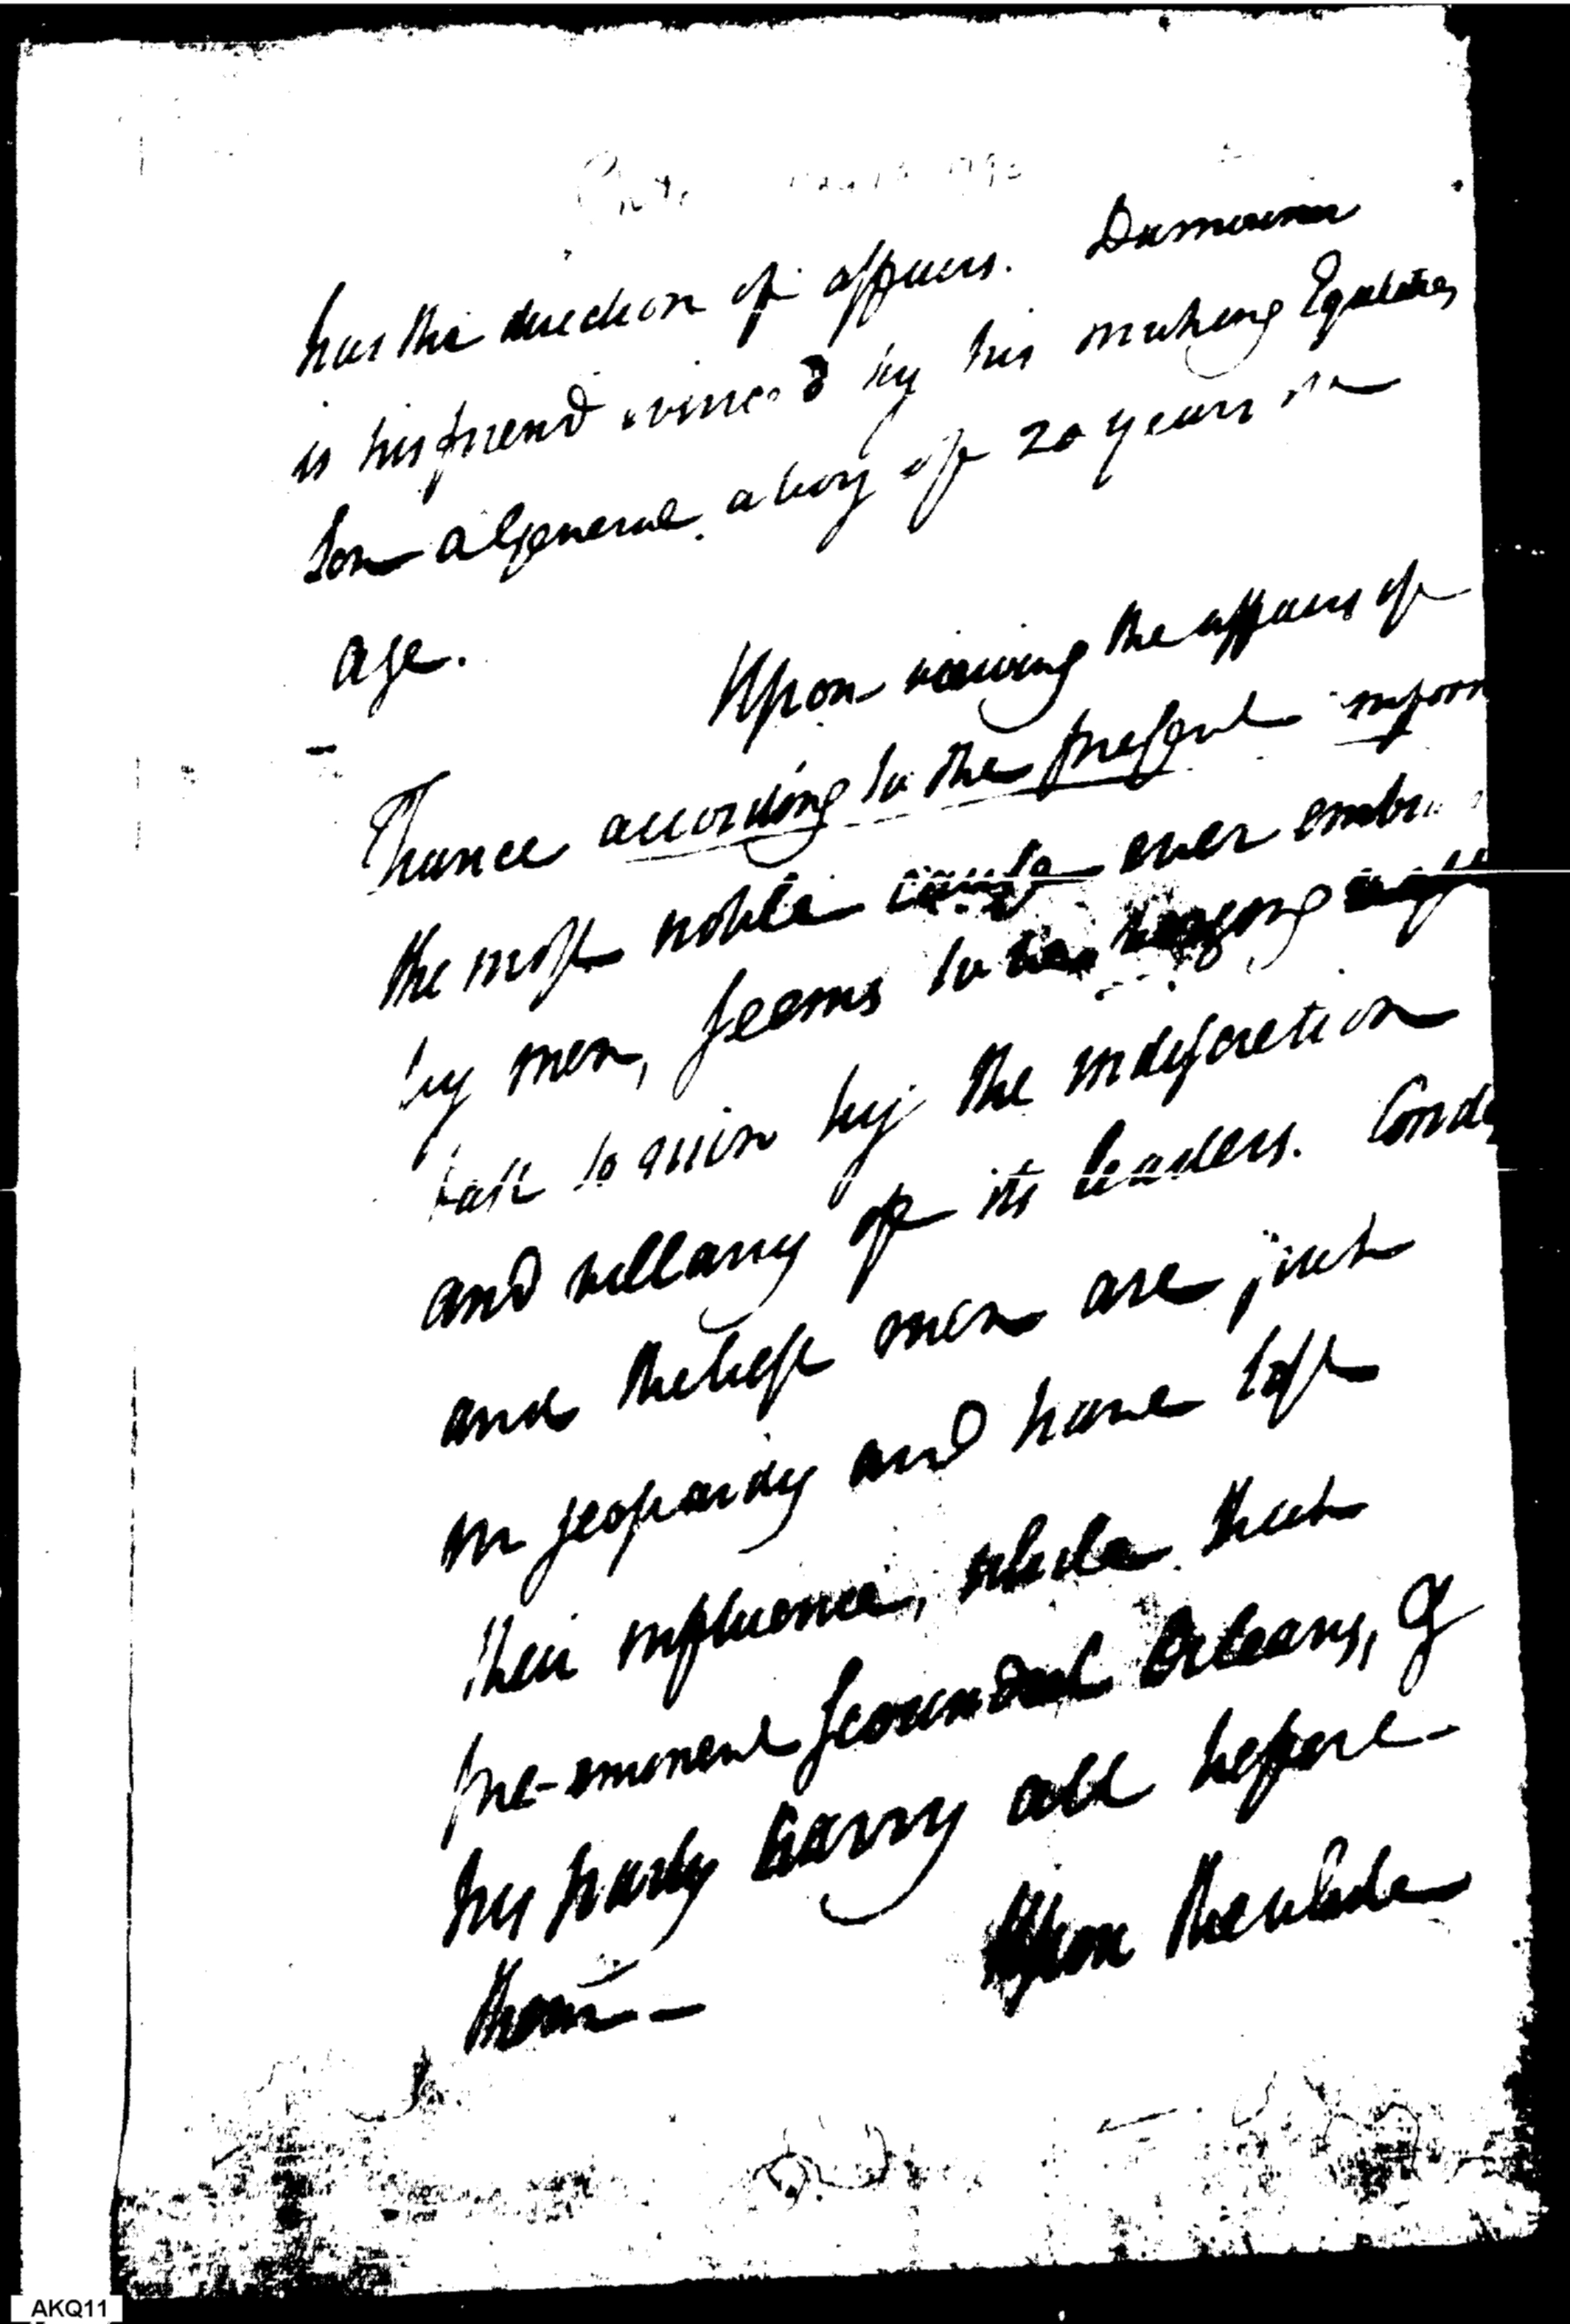 has the direction of affairs. Dumourier
is his friend evinced by his making Egalités
Son a General, a boy of 20 years
age.
Upon viewing the affairs of
France according to the present inform
the most noble cause ever embra
by men, seems to be hanging
to ruin by the indiscretion
and villany of its leaders. Cond
and the best men are put
in jeopardy and have lost
their influence, while that
pre-eminent scoundrel Orleans, &
his party carry all before
them —
Upon the whole
AKQ11